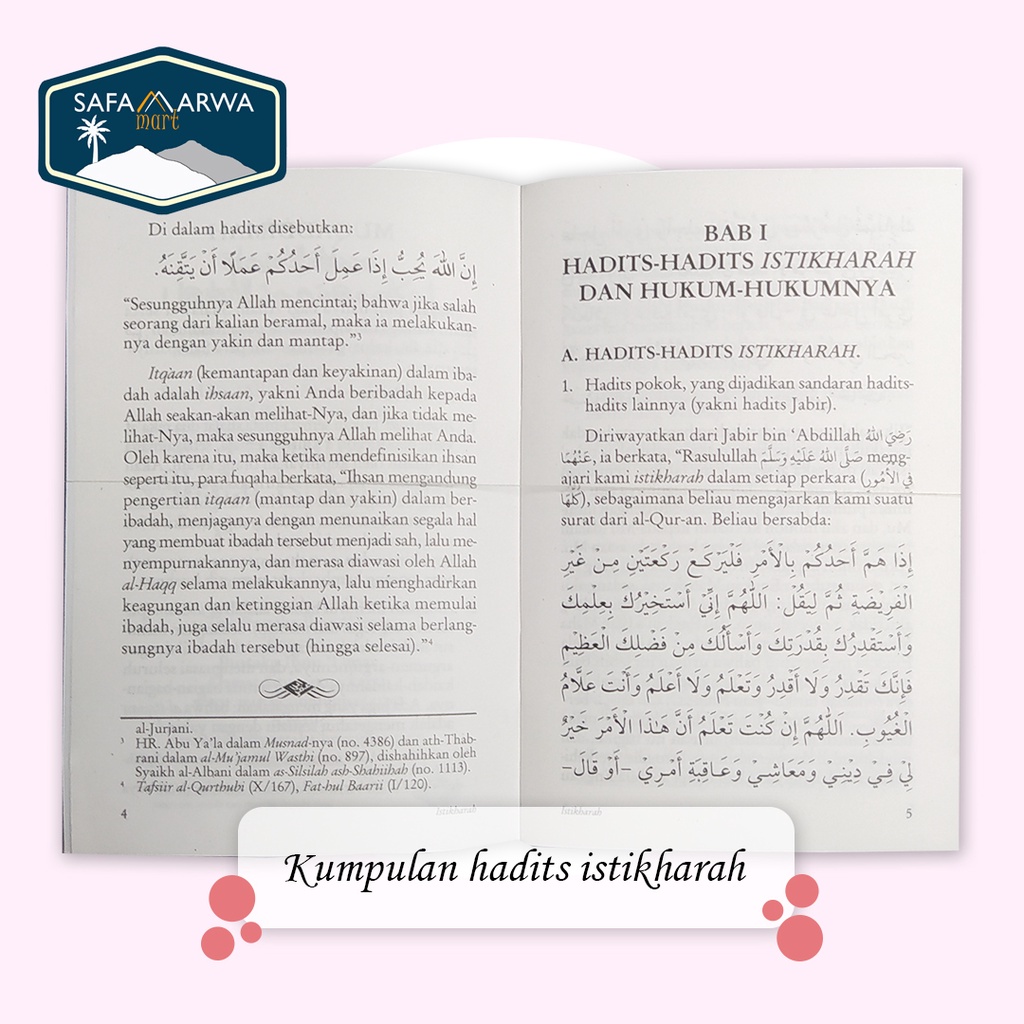 SAFA MARWA
mart
Di dalam hadits disebutkan:
إِنَّ اللهَ يُحِبُّ إِذَا عَمِلَ أَحَدُكُمْ عَمَلًا أَنْ يَتْقِنَهُ.
“Sesungguhnya Allah mencintai; bahwa jika salah
seorang dari kalian beramal, maka ia melakukan-
nya dengan yakin dan mantap.”³
Itqaan (kemantapan dan keyakinan) dalam iba-
dah adalah ihsaan, yakni Anda beribadah kepada
Allah seakan-akan melihat-Nya, dan jika tidak me-
lihat-Nya, maka sesungguhnya Allah melihat Anda.
Oleh karena itu, maka ketika mendefinisikan ihsan
seperti itu, para fuqaha berkata, “Ihsan mengandung
pengertian itqaan (mantap dan yakin) dalam ber-
ibadah, menjaganya dengan menunaikan segala hal
yang membuat ibadah tersebut menjadi sah, lalu me-
nyempurnakannya, dan merasa diawasi oleh Allah
al-Haqq selama melakukannya, lalu menghadirkan
keagungan dan ketinggian Allah ketika memulai
ibadah, juga selalu merasa diawasi selama berlang-
sungnya ibadah tersebut (hingga selesai).”⁴
al-Jurjani.
³ HR. Abu Ya’la dalam Musnad-nya (no. 4386) dan ath-Thab-
rani dalam al-Mu’jamul Wasthi (no. 897), dishahihkan oleh
Syaikh al-Albani dalam as-Silsilah ash-Shahiihah (no. 1113).
⁴ Tafsiir al-Qurthubi (X/167), Fat-hul Baarii (I/120).
4 Istikharah
BAB I
HADITS-HADITS ISTIKHARAH
DAN HUKUM-HUKUMNYA
A. HADITS-HADITS ISTIKHARAH.
1. Hadits pokok, yang dijadikan sandaran hadits-
hadits lainnya (yakni hadits Jabir).
Diriwayatkan dari Jabir bin ‘Abdillah رَضِيَ اللهُ
عَنْهُمَا, ia berkata, “Rasulullah صَلَّى اللهُ عَلَيْهِ وَسَلَّمَ meng-
ajari kami istikharah dalam setiap perkara (فِي الْأُمُورِ
كُلِّهَا), sebagaimana beliau mengajarkan kami suatu
surat dari al-Qur-an. Beliau bersabda:
إِذَا هَمَّ أَحَدُكُمْ بِالْأَمْرِ فَلْيَرْكَعْ رَكْعَتَيْنِ مِنْ غَيْرِ
الْفَرِيْضَةِ ثُمَّ لِيَقُلْ: اَللَّهُمَّ إِنِّيْ أَسْتَخِيْرُكَ بِعِلْمِكَ
وَأَسْتَقْدِرُكَ بِقُدْرَتِكَ وَأَسْأَلُكَ مِنْ فَضْلِكَ الْعَظِيْمِ
فَإِنَّكَ تَقْدِرُ وَلَا أَقْدِرُ وَتَعْلَمُ وَلَا أَعْلَمُ وَأَنْتَ عَلَّامُ
الْغُيُوْبِ. اَللَّهُمَّ إِنْ كُنْتَ تَعْلَمُ أَنَّ هَذَا الْأَمْرَ خَيْرٌ
لِيْ فِيْ دِيْنِيْ وَمَعَاشِيْ وَعَاقِبَةِ أَمْرِيْ –أَوْ قَالَ–
Istikharah 5
Kumpulan hadits istikharah